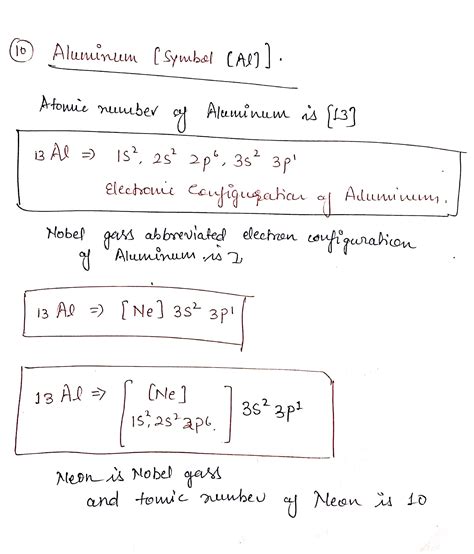 (10) Aluminum [Symbol (Al)].
Atomic number of Aluminum is [13]
13 Al ⇒ 1S², 2S² 2p⁶, 3S² 3p¹
Electronic Configuration of Aduminum.
Nobel gass abbreviated electron configuration
of Aluminum is
13 Al ⇒ [Ne] 3S² 3p¹
13 Al ⇒ [ [Ne] ] 3S² 3p¹
1S², 2S² 2p6.
Neon is Nobel gass
and tomic number of Neon is 10